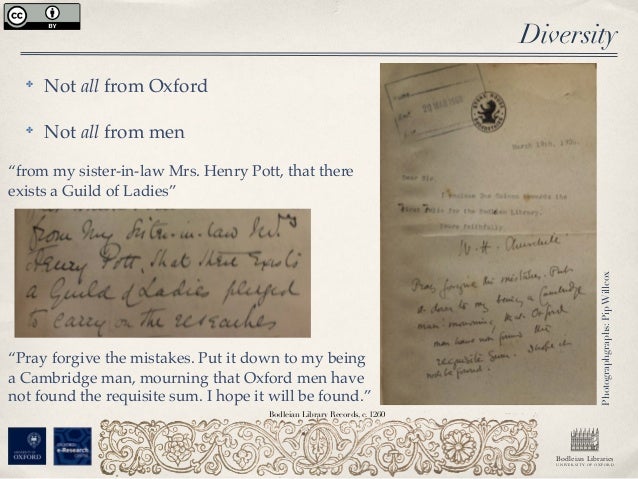 cc
BY
Diversity
Not all from Oxford
Not all from men
“from my sister-in-law Mrs. Henry Pott, that there
exists a Guild of Ladies”
from my Sister-in-law Mrs
Henry Pott, that there exists
a Guild of Ladies pledged
to carry on the researches
“Pray forgive the mistakes. Put it down to my being
a Cambridge man, mourning that Oxford men have
not found the requisite sum. I hope it will be found.”
20 MAR 1906
March 19th, 190
Dear Sir,
I enclose Two Guineas towards the
First Folio for the Bodleian Library.
Yours faithfully,
W. H. Churchill
Pray forgive the mistakes. Put
it down to my being a Cambridge
man: mourning that Oxford
men have not found the
requisite sum. I hope it
will be found.
Photographgraphs: Pip Willcox
Bodleian Library Records, c. 1260
UNIVERSITY OF
OXFORD
e-Research
Bodleian Libraries
UNIVERSITY OF OXFORD